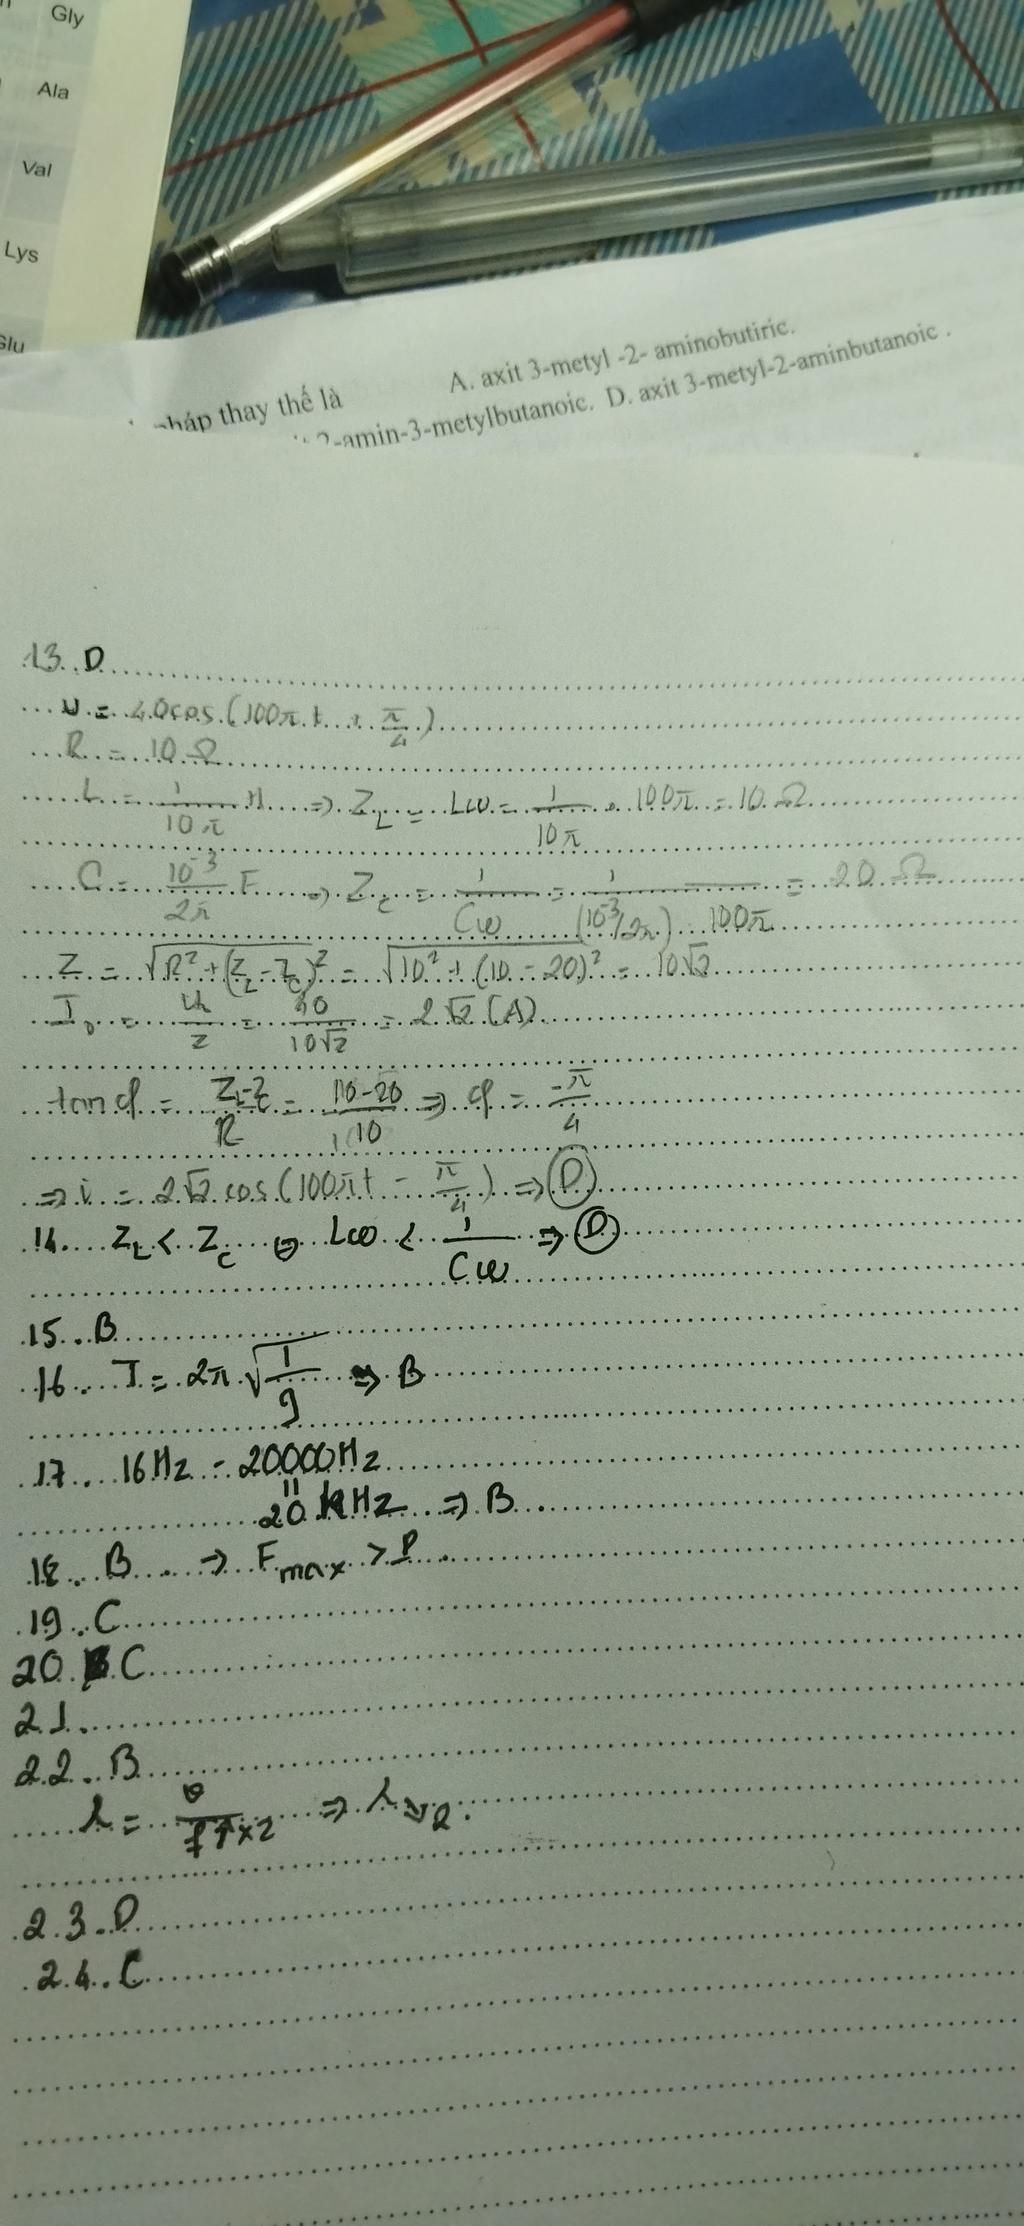 Gly
Ala
Val
Lys
Glu
pháp thay thế là
A. axit 3-metyl -2- aminobutiric.
2-amin-3-metylbutanoic. D. axit 3-metyl-2-aminbutanoic .
13. D
u = 40cos (100πt + π/4)
R = 10 Ω
L = 1/10π H ⇒ Z_L = Lω = 1/10π . 100π = 10 Ω
C = 10^-3/2π F ⇒ Z_C = 1/Cω = 1/(10^-3/2π) . 100π = 20 Ω
Z = √R² + (Z_L - Z_C)² = √10² + (10 - 20)² = 10√2
I_0 = U/Z = 40/10√2 = 2√2 (A)
tan φ = Z_L-Z_C/R = 10-20/10 ⇒ φ = -π/4
⇒ i = 2√2 cos (100πt - π/4) ⇒ D
14. Z_L < Z_C ⇔ Lω < 1/Cω ⇒ D
15. B
16. T = 2π √l/g ⇒ B
17. 16Hz - 20000Hz
= 20 kHz ⇒ B
18. B → F_max > P
19. C
20. C
21.
22. B
λ = v/f↑×2 ⇒ λ↓2.
23. D
24. C